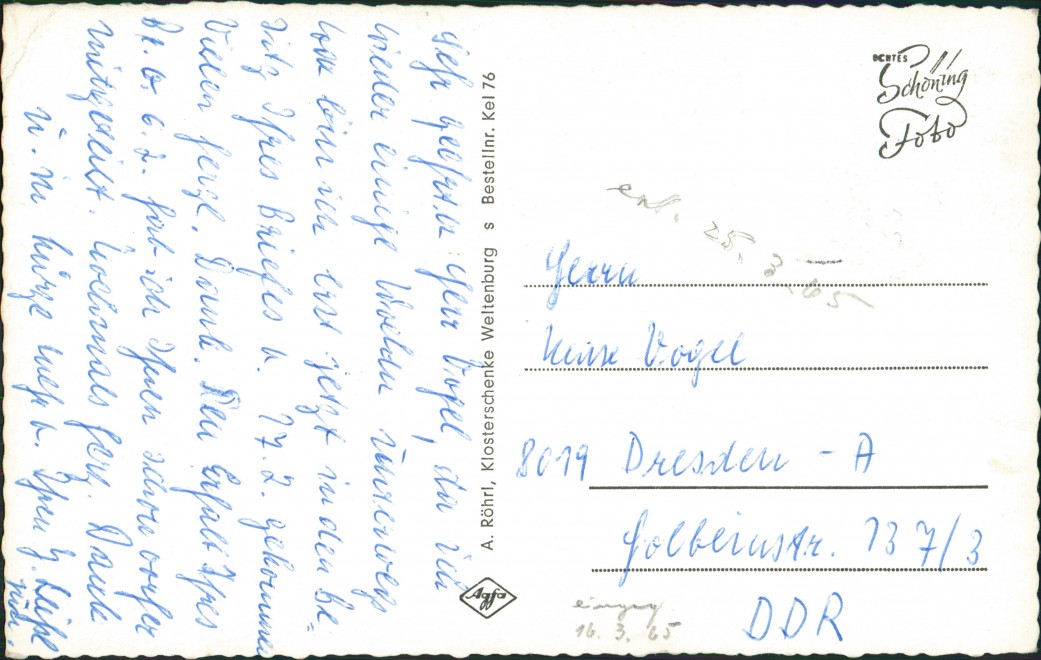 Sehr geehrter Herr Vogel, da ich
wieder einige Wochen unterwegs
war bin ich erst jetzt in den Be=
sitz Ihres Briefes v. 17.2. gekommen
Vielen herzl. Dank. Den Erhalt Ihres
Br. v. 6.2. hab ich Ihnen schon vorher
mitgeteilt. Nochmals herzl. Dank
u. in Kürze mehr v. Ihrem
A. Röhrl, Klosterschenke Weltenburg s Bestellnr. Kel 76
Agfa
ECHTES
Schöning
Foto
25. 3. 65
Herrn
Vogel
8019 Dresden - A
Holbeinstr. 137/3
DDR
16. 3. 65